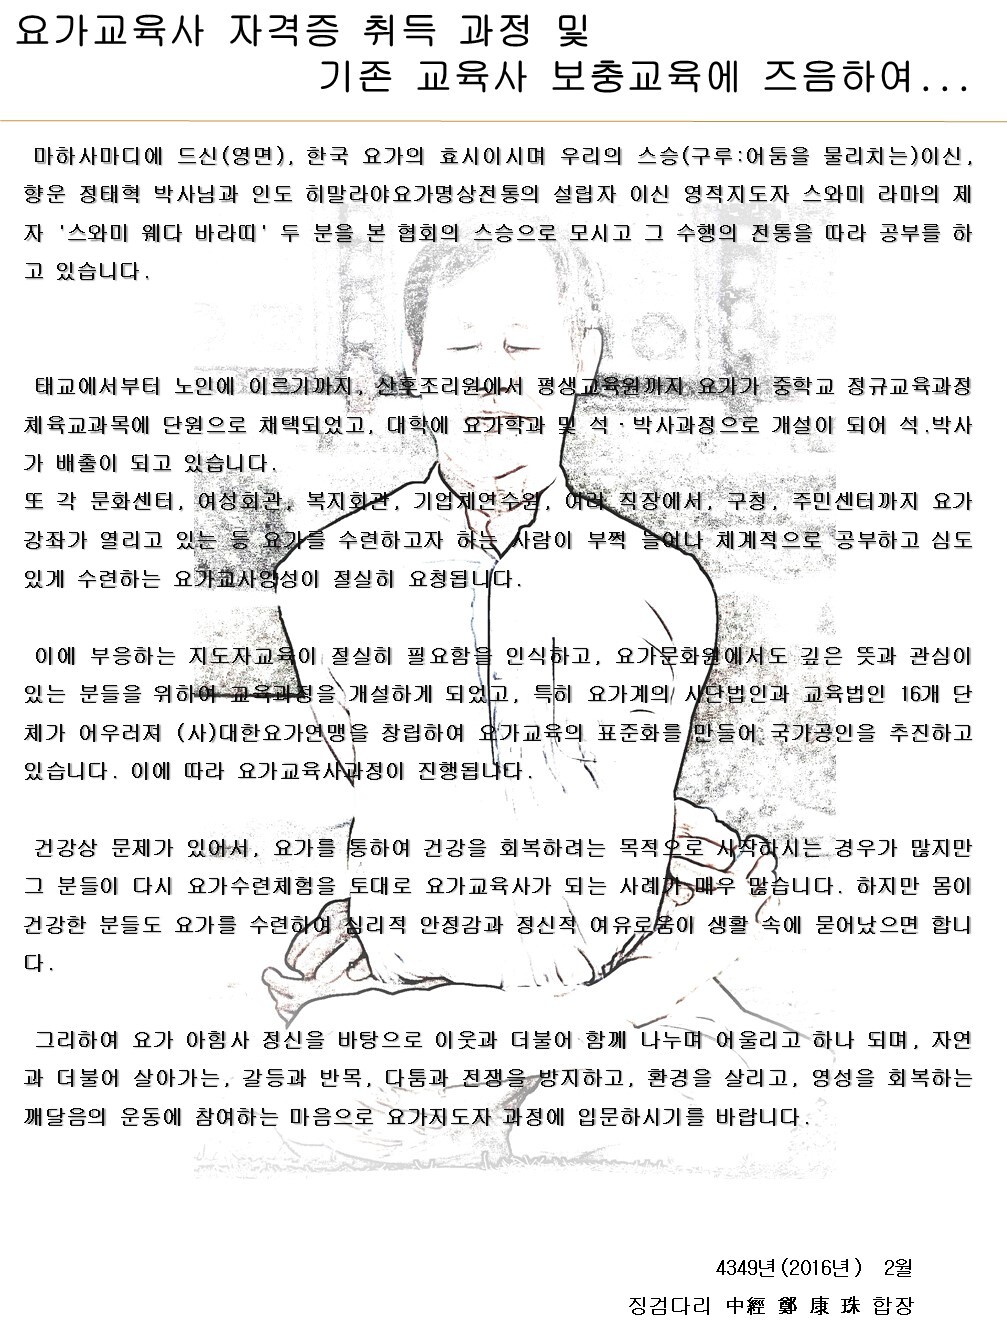 요가교육사 자격증 취득 과정 및
기존 교육사 보충교육에 즈음하여...
마하사마디에 드신(영면), 한국 요가의 효시이시며 우리의 스승(구루:어둠을 물리치는)이신,
향운 정태혁 박사님과 인도 히말라야요가명상전통의 설립자 이신 영적지도자 스와미 라마의 제
자 '스와미 웨다 바라띠' 두 분을 본 협회의 스승으로 모시고 그 수행의 전통을 따라 공부를 하
고 있습니다.
태교에서부터 노인에 이르기까지, 산후조리원에서 평생교육원까지 요가가 중학교 정규교육과정
체육교과목에 단원으로 채택되었고, 대학에 요가학과 및 석·박사과정으로 개설이 되어 석.박사
가 배출이 되고 있습니다.
또 각 문화센터, 여성회관, 복지회관, 기업체연수원, 여러 직장에서, 구청, 주민센터까지 요가
강좌가 열리고 있는 등 요가를 수련하고자 하는 사람이 부쩍 늘어나 체계적으로 공부하고 심도
있게 수련하는 요가교사양성이 절실히 요청됩니다.
이에 부응하는 지도자교육이 절실히 필요함을 인식하고, 요가문화원에서도 깊은 뜻과 관심이
있는 분들을 위하여 교육과정을 개설하게 되었고, 특히 요가계의 사단법인과 교육법인 16개 단
체가 어우러져 (사)대한요가연맹을 창립하여 요가교육의 표준화를 만들어 국가공인을 추진하고
있습니다. 이에 따라 요가교육사과정이 진행됩니다.
건강상 문제가 있어서, 요가를 통하여 건강을 회복하려는 목적으로 시작하시는 경우가 많지만
그 분들이 다시 요가수련체험을 토대로 요가교육사가 되는 사례가 매우 많습니다. 하지만 몸이
건강한 분들도 요가를 수련하여 심리적 안정감과 정신적 여유로움이 생활 속에 묻어났으면 합니
다.
그리하여 요가 아힘사 정신을 바탕으로 이웃과 더불어 함께 나누며 어울리고 하나 되며, 자연
과 더불어 살아가는, 갈등과 반목, 다툼과 전쟁을 방지하고, 환경을 살리고, 영성을 회복하는
깨달음의 운동에 참여하는 마음으로 요가지도자 과정에 입문하시기를 바랍니다.
4349년(2016년) 2월
징검다리 中經 鄭 康 珠 합장